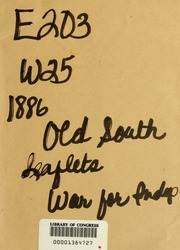 E203
W25
1886
Old South
Leaflets
War for Indep
LIBRARY OF CONGRESS
00001364727